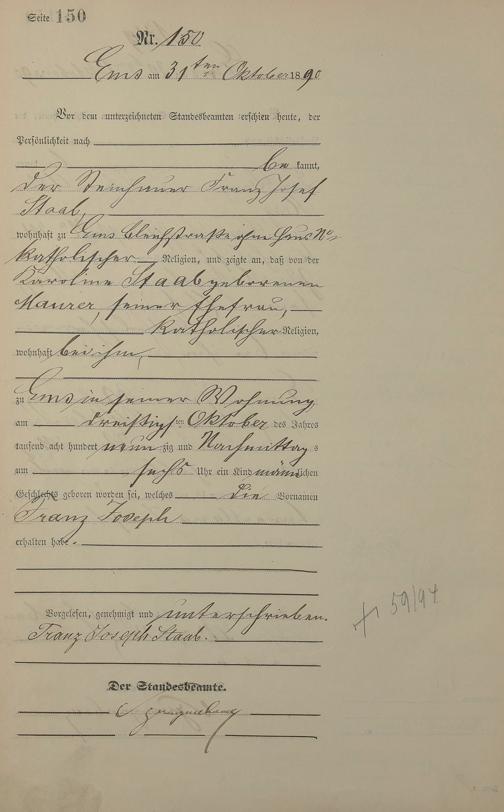 Seite 150
Nr. 150
Ems am 31ten Oktober 1890
Vor dem unterzeichneten Standesbeamten erschien heute, der
Persönlichkeit nach
be kannt,
der Steinhauer Franz Josef
Staab,
wohnhaft zu Ems Bleichstraße ohne Haus No
katholischer Religion, und zeigte an, daß von der
Karoline Staab geborenen
Maurer, seiner Ehefrau,
katholischer Religion,
wohnhaft bei ihm,
zu Ems in seiner Wohnung
am dreißigsten Oktober des Jahres
tausend acht hundert neun zig und Nachmittag s
um sechs Uhr ein Kind männ lichen
Geschlechts geboren worden sei, welches die Vornamen
Franz Joseph
erhalten habe.
Vorgelesen, genehmigt und unterschrieben.
Franz Joseph Staab.
† 59/94
Der Standesbeamte.